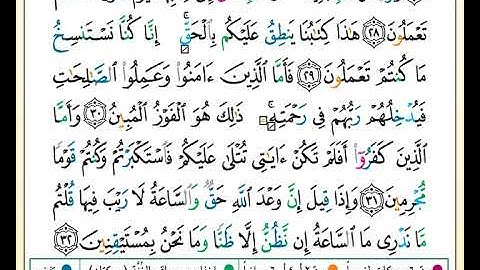 تَعْمَلُونَ ٢٨ هَٰذَا كِتَٰبُنَا يَنطِقُ عَلَيْكُم بِالْحَقِّ ۚ إِنَّا كُنَّا نَسْتَنسِخُ
مَا كُنتُمْ تَعْمَلُونَ ٢٩ فَأَمَّا الَّذِينَ ءَامَنُوا۟ وَعَمِلُوا۟ الصَّٰلِحَٰتِ
فَيُدْخِلُهُمْ رَبُّهُمْ فِى رَحْمَتِهِۦ ۚ ذَٰلِكَ هُوَ الْفَوْزُ الْمُبِينُ ٣٠ وَأَمَّا
الَّذِينَ كَفَرُوٓا۟ أَفَلَمْ تَكُنْ ءَايَٰتِى تُتْلَىٰ عَلَيْكُمْ فَاسْتَكْبَرْتُمْ وَكُنتُمْ قَوْمًا
مُّجْرِمِينَ ٣١ وَإِذَا قِيلَ إِنَّ وَعْدَ اللَّهِ حَقٌّ وَالسَّاعَةُ لَا رَيْبَ فِيهَا قُلْتُم
مَّا نَدْرِى مَا السَّاعَةُ إِن نَّظُنُّ إِلَّا ظَنًّا وَمَا نَحْنُ بِمُسْتَيْقِنِينَ ٣٢